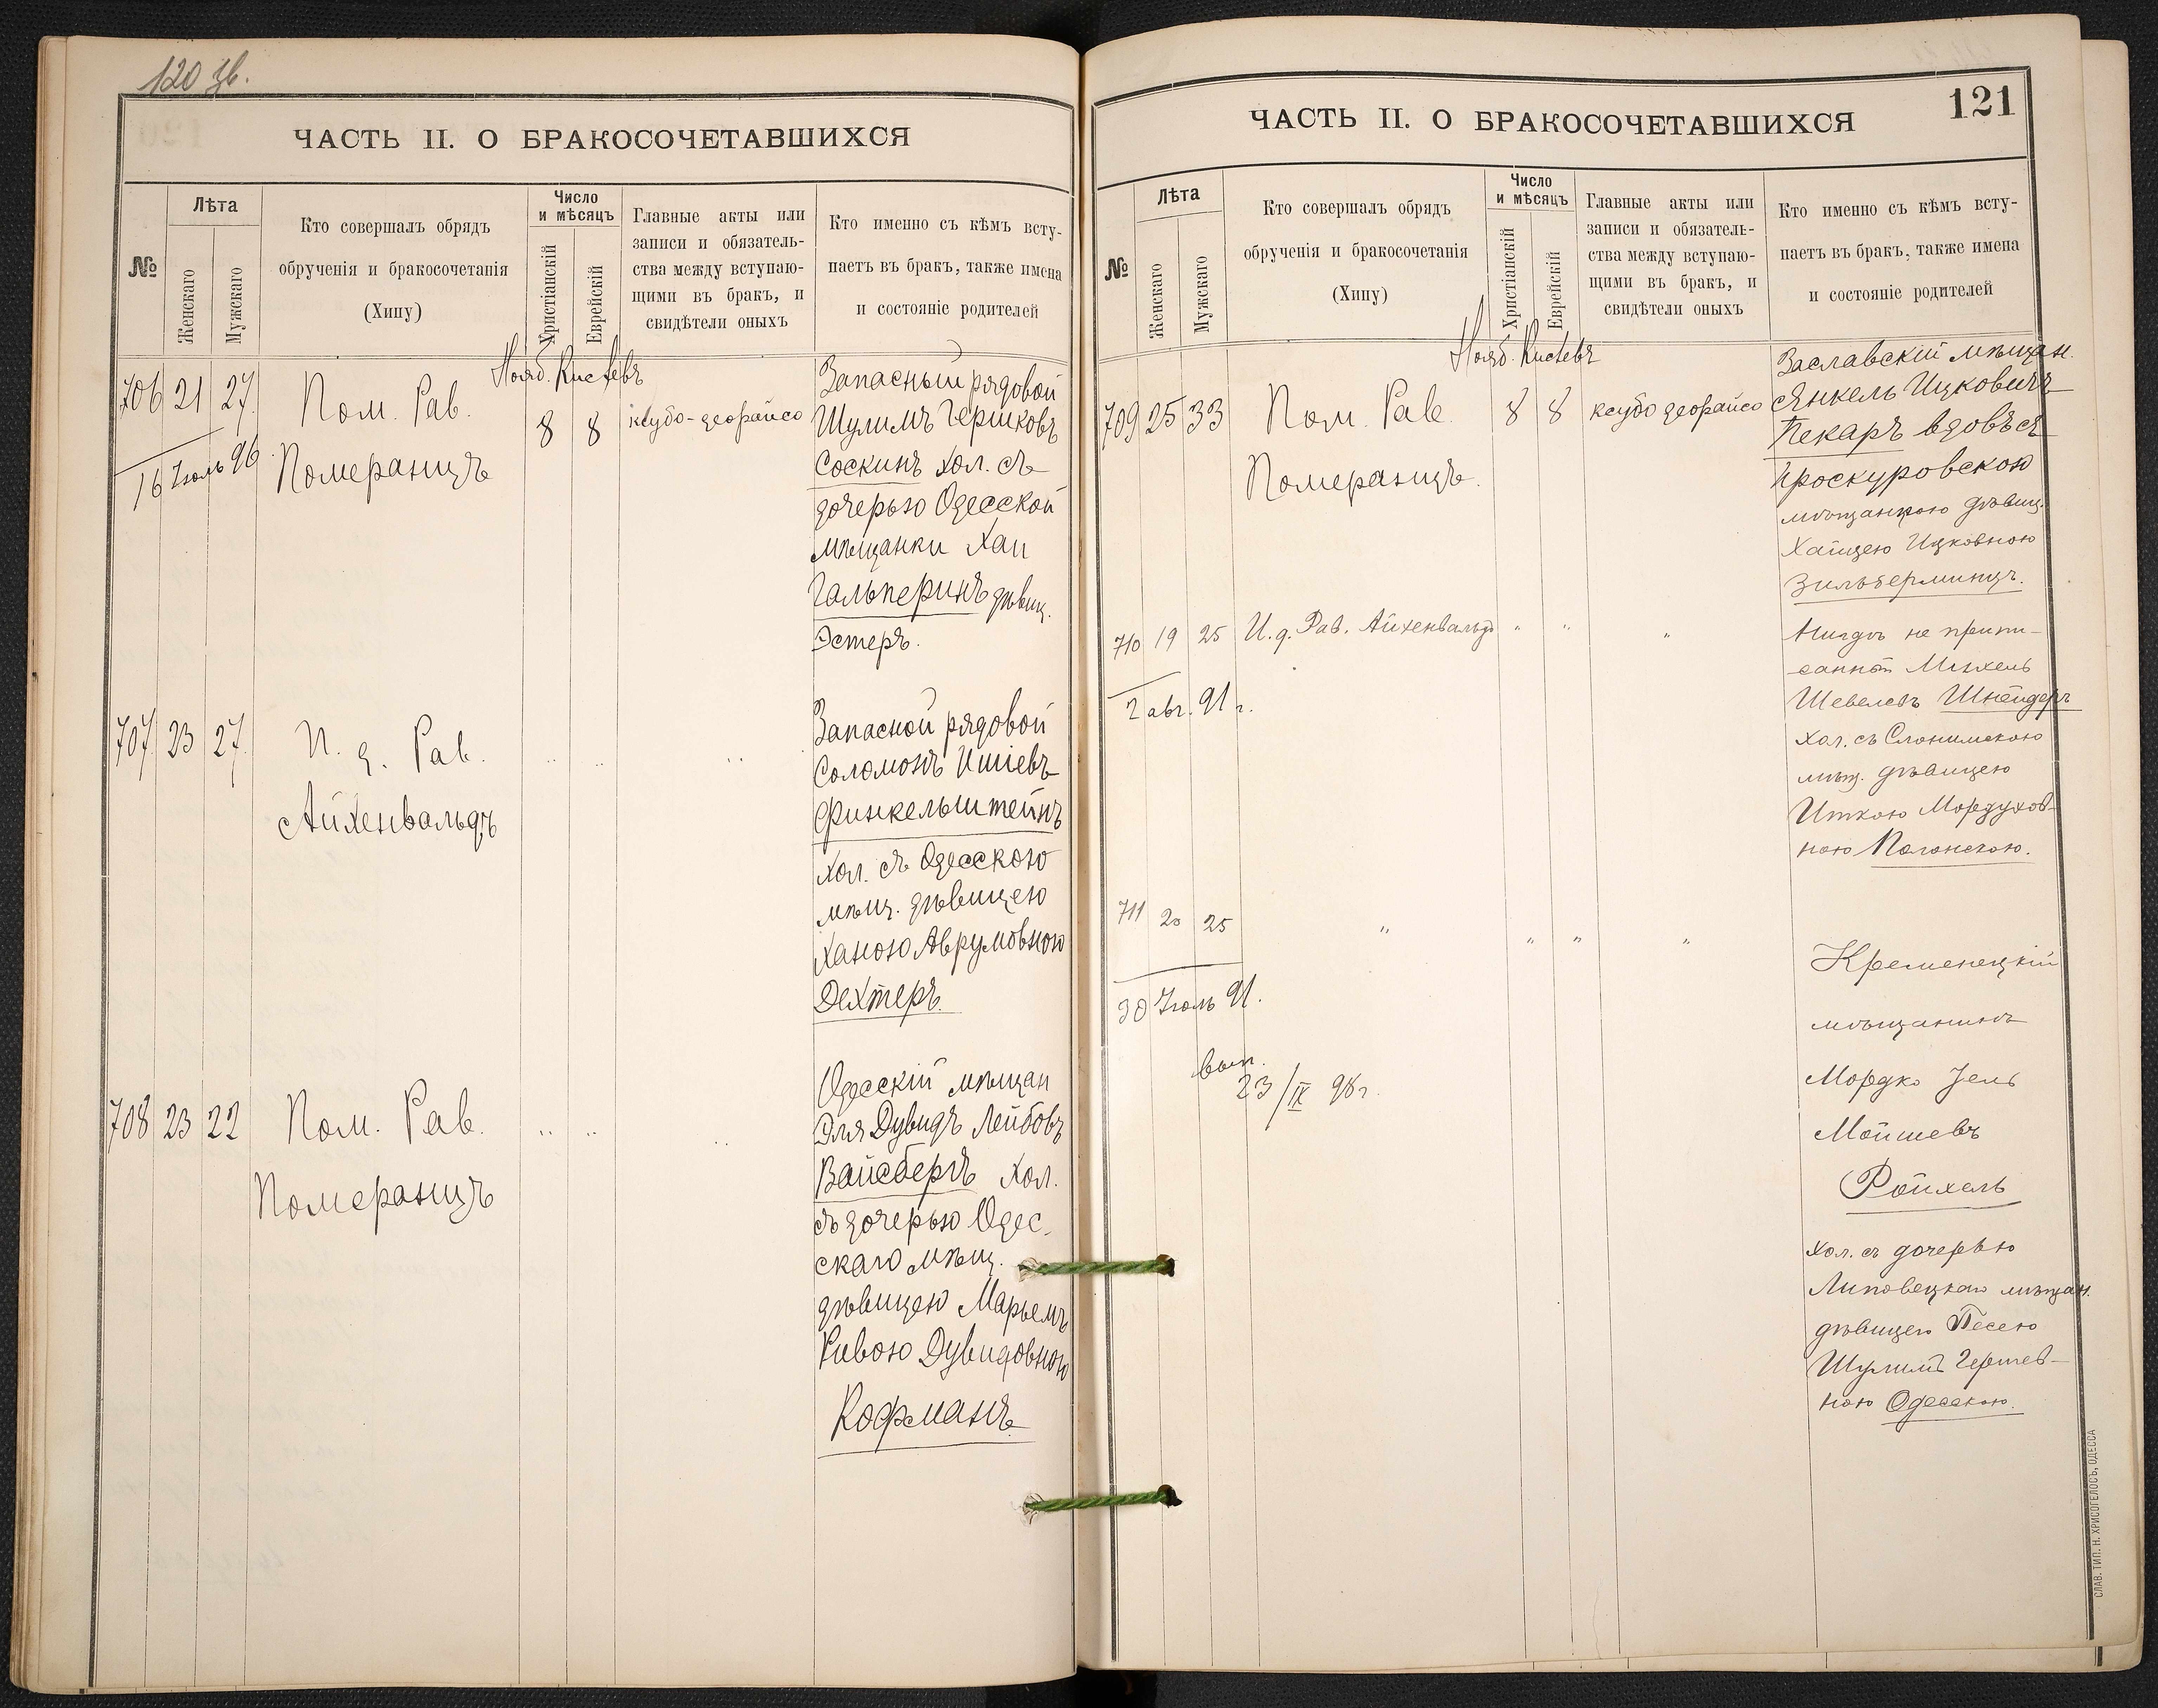 120 зв.
ЧАСТЬ II. О БРАКОСОЧЕТАВШИХСЯ
№
Лѣта
Женскаго
Мужскаго
Кто совершалъ обрядъ
обрученія и бракосочетанія
(Хипу)
Число
и мѣсяцъ
Христіанскій
Еврейскій
Главные акты или
записи и обязатель-
ства между вступаю-
щими въ бракъ, и
свидѣтели оныхъ
Кто именно съ кѣмъ всту-
паетъ въ бракъ, также имена
и состояніе родителей
Нояб. Кислевъ
706 21 27 Пом. Рав. 8 8 ксубо-деорайсо
16 Іюль 96
Померанцъ
Запасный рядовой
Шулимъ Гершковъ
Соскинъ хол. съ
дочерью Одесской
мѣщанки Хаи
Гальперинъ дѣвиц.
Эстеръ.
707 23 27 И. д. Рав. " " "
Айхенвальдъ
Запасной рядовой
Соломонъ Ишіевъ
Финкельштейнъ
хол. съ Одесскою
мѣщ. дѣвицею
Ханою Аврумовною
Дехтеръ.
708 23 22 Пом. Рав. " " "
Померанцъ
Одесскій мѣщан
Эля Дувидъ Лейбовъ
Вайсбергъ хол.
съ дочерью Одес-
скаго мѣщ.
дѣвицею Марьемъ
Ривою Дувидовною
Кофманъ.
121
ЧАСТЬ II. О БРАКОСОЧЕТАВШИХСЯ
№
Лѣта
Женскаго
Мужскаго
Кто совершалъ обрядъ
обрученія и бракосочетанія
(Хипу)
Число
и мѣсяцъ
Христіанскій
Еврейскій
Главные акты или
записи и обязатель-
ства между вступаю-
щими въ бракъ, и
свидѣтели оныхъ
Кто именно съ кѣмъ всту-
паетъ въ бракъ, также имена
и состояніе родителей
Нояб. Кислевъ
709 25 33 Пом. Рав. 8 8 ксубо деорайсо
Померанцъ.
Заславскій мѣщан.
Янкель Ицковичъ
Пекаръ вдовъ съ
Проскуровскою
мѣщанкою дѣвиц.
Хайцею Ицковною
Зильберминцъ.
710 19 25 И. д. Рав. Айхенвальдъ " " "
2 авг. 91 г.
Нигдѣ не припи-
санный Михель
Шевелевъ Шнейдеръ
хол. съ Слонимскою
мѣщ. дѣвицею
Иткою Мордухов-
ною Полонскою.
711 20 25 " " " "
30 Іюль 91.
вып.
23/IX 98 г.
Кременецкій
мѣщанинъ
Мордко Зель
Мойшевъ
Ройхель
хол. съ дочерью
Липовецкаго мѣщан.
дѣвицею Песею
Шулимъ Гершев-
ною Одесскою.
СЛАВ. ТИП. Н. ХРИСОГЕЛОСЪ, ОДЕССА